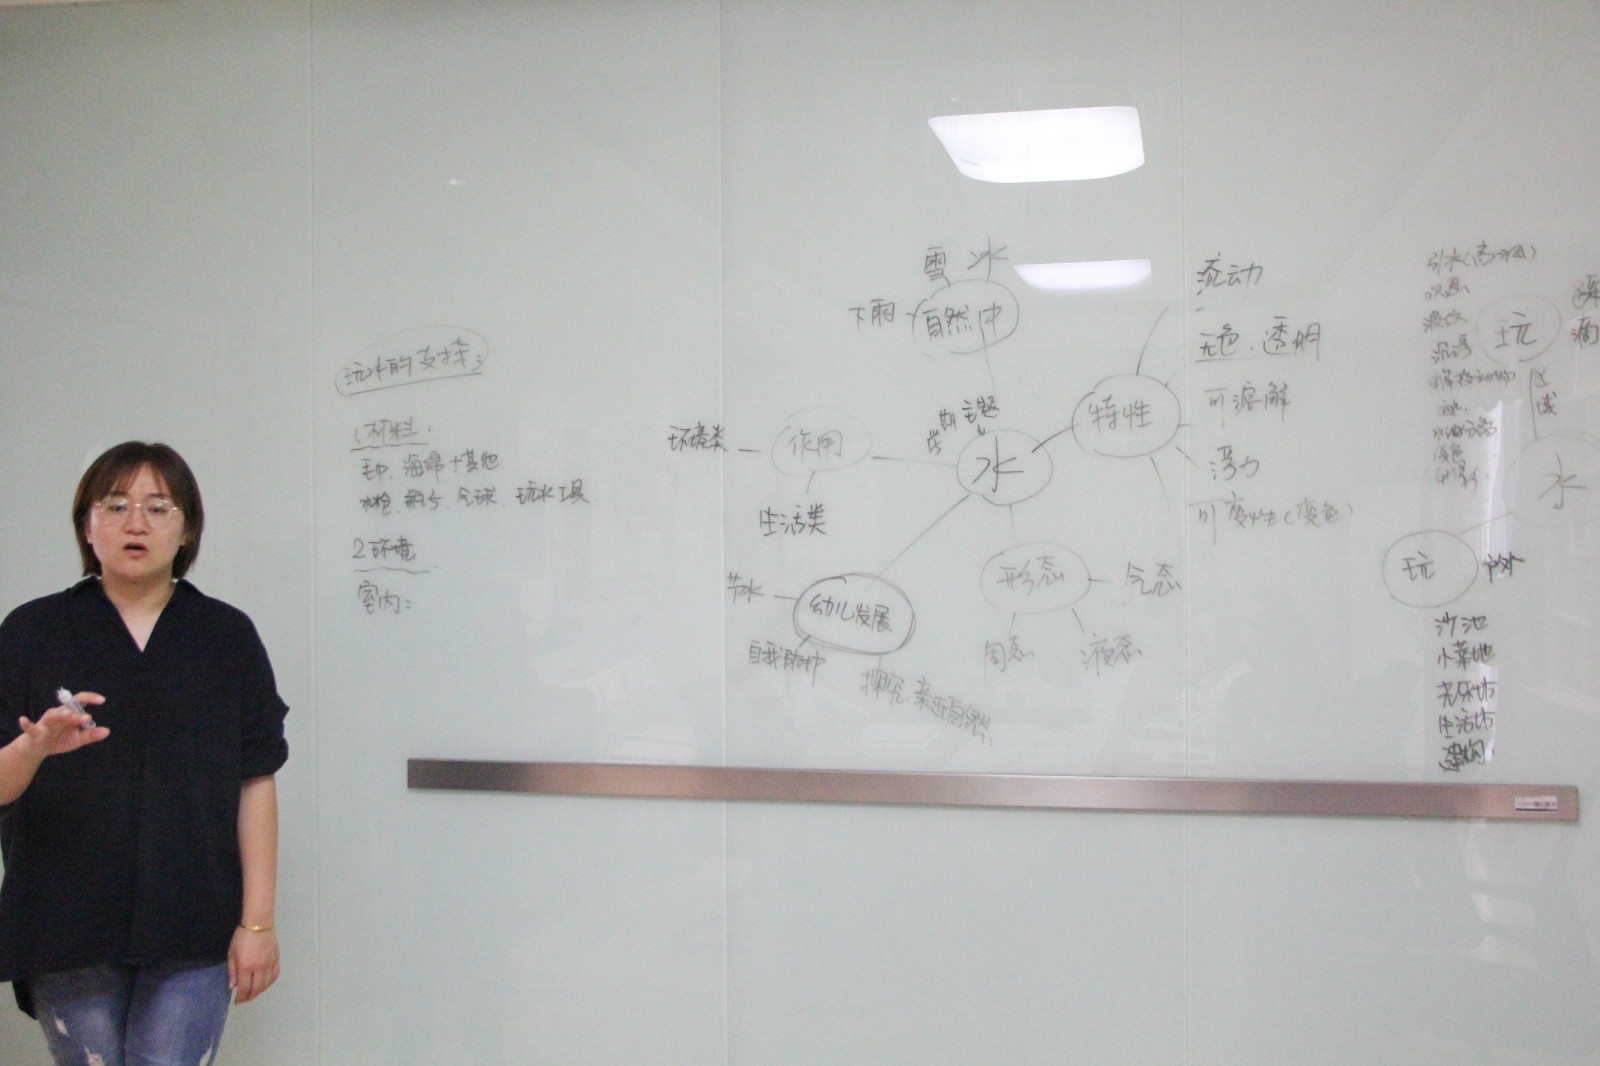 玩水的支持:
1.材料:
毛巾、海绵+其他
水枪、瓶子、气球、玩水工具
2.环境
室内:
雪 冰
下雨
自然中
主题
水
作用
环境类
生活类
幼儿发展
节水
自我服务
探究、亲近自然
形态
气态
固态
液态
特性
流动
无色、透明
可溶解
浮力
可变性(变色)
玩
区域
水
玩
户外
沙池
小菜地
音乐坊
生活坊
建构